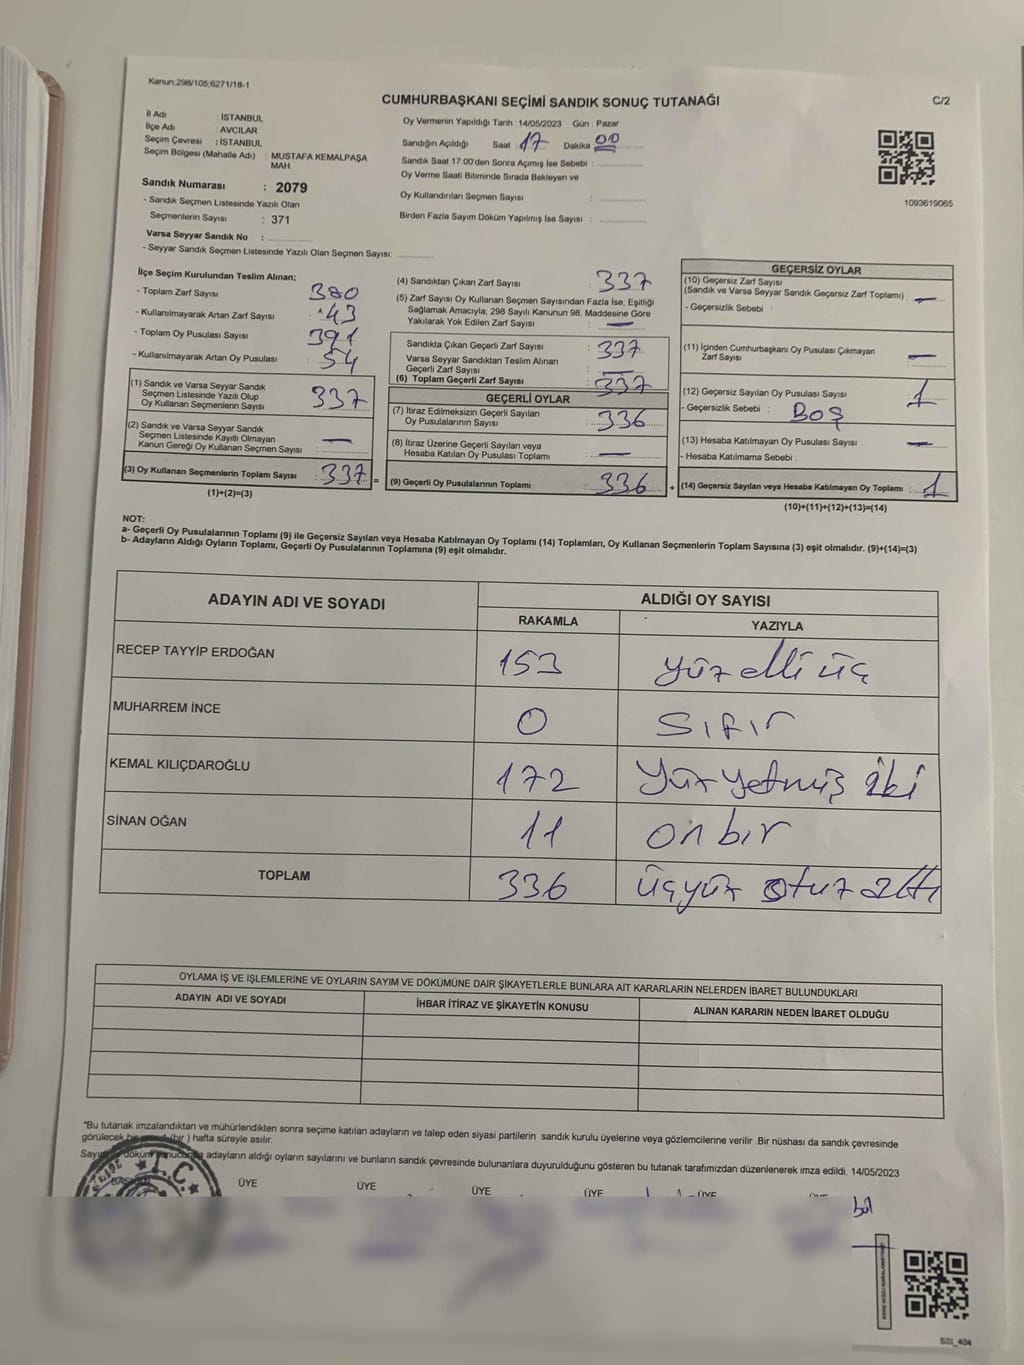 Kanun;298/105;6271/18-1
CUMHURBAŞKANI SEÇİMİ SANDIK SONUÇ TUTANAĞI
C/2
İl Adı : İSTANBUL
İlçe Adı : AVCILAR
Seçim Çevresi : İSTANBUL
Seçim Bölgesi (Mahalle Adı) : MUSTAFA KEMALPAŞA MAH.
Sandık Numarası : 2079
- Sandık Seçmen Listesinde Yazılı Olan
Seçmenlerin Sayısı : 371
Varsa Seyyar Sandık No :
- Seyyar Sandık Seçmen Listesinde Yazılı Olan Seçmen Sayısı:
Oy Vermenin Yapıldığı Tarih : 14/05/2023 Gün : Pazar
Sandığın Açıldığı Saat : 17 Dakika 00
Sandık Saat 17:00'den Sonra Açımış İse Sebebi :
Oy Verme Saati Bitiminde Sırada Bekleyen ve
Oy Kullandırılan Seçmen Sayısı :
Birden Fazla Sayım Döküm Yapılmış İse Sayısı :
1093619065
İlçe Seçim Kurulundan Teslim Alınan;
- Toplam Zarf Sayısı : 380
- Kullanılmayarak Artan Zarf Sayısı : 43
- Toplam Oy Pusulası Sayısı : 391
- Kullanılmayarak Artan Oy Pusulası : 54
(1) Sandık ve Varsa Seyyar Sandık
Seçmen Listesinde Yazılı Olup
Oy Kullanan Seçmenlerin Sayısı : 337
(2) Sandık ve Varsa Seyyar Sandık
Seçmen Listesinde Kayıtlı Olmayan
Kanun Gereği Oy Kullanan Seçmen Sayısı : —
(3) Oy Kullanan Seçmenlerin Toplam Sayısı : 337 =
(1)+(2)=(3)
(4) Sandıktan Çıkan Zarf Sayısı : 337
(5) Zarf Sayısı Oy Kullanan Seçmen Sayısından Fazla İse, Eşitliği
Sağlamak Amacıyla; 298 Sayılı Kanunun 98. Maddesine Göre
Yakılarak Yok Edilen Zarf Sayısı : —
Sandıkta Çıkan Geçerli Zarf Sayısı : 337
Varsa Seyyar Sandıktan Teslim Alınan
Geçerli Zarf Sayısı : —
(6) Toplam Geçerli Zarf Sayısı : 337
GEÇERLİ OYLAR
(7) İtiraz Edilmeksizin Geçerli Sayılan
Oy Pusulalarının Sayısı : 336
(8) İtiraz Üzerine Geçerli Sayılan veya
Hesaba Katılan Oy Pusulası Toplamı : —
(9) Geçerli Oy Pusulalarının Toplamı : 336 +
GEÇERSİZ OYLAR
(10) Geçersiz Zarf Sayısı
(Sandık ve Varsa Seyyar Sandık Geçersiz Zarf Toplamı) : —
- Geçersizlik Sebebi :
(11) İçinden Cumhurbaşkanı Oy Pusulası Çıkmayan
Zarf Sayısı : —
(12) Geçersiz Sayılan Oy Pusulası Sayısı : 1
- Geçersizlik Sebebi : BOŞ
(13) Hesaba Katılmayan Oy Pusulası Sayısı : —
- Hesaba Katılmama Sebebi :
(14) Geçersiz Sayılan veya Hesaba Katılmayan Oy Toplamı : 1
(10)+(11)+(12)+(13)=(14)
NOT:
a- Geçerli Oy Pusulalarının Toplamı (9) ile Geçersiz Sayılan veya Hesaba Katılmayan Oy Toplamı (14) Toplamları, Oy Kullanan Seçmenlerin Toplam Sayısına (3) eşit olmalıdır. (9)+(14)=(3)
b- Adayların Aldığı Oyların Toplamı, Geçerli Oy Pusulalarının Toplamına (9) eşit olmalıdır.
ADAYIN ADI VE SOYADI ALDIĞI OY SAYISI
RAKAMLA YAZIYLA
RECEP TAYYİP ERDOĞAN 153 yüz elli üç
MUHARREM İNCE 0 SIFIR
KEMAL KILIÇDAROĞLU 172 Yüz yetmiş iki
SİNAN OĞAN 11 on bir
TOPLAM 336 üçyüz otuz altı
OYLAMA İŞ VE İŞLEMLERİNE VE OYLARIN SAYIM VE DÖKÜMÜNE DAİR ŞİKAYETLERLE BUNLARA AİT KARARLARIN NELERDEN İBARET BULUNDUKLARI
ADAYIN ADI VE SOYADI İHBAR İTİRAZ VE ŞİKAYETİN KONUSU ALINAN KARARIN NEDEN İBARET OLDUĞU
"Bu tutanak imzalandıktan ve mühürlendikten sonra seçime katılan adayların ve talep eden siyasi partilerin sandık kurulu üyelerine veya gözlemcilerine verilir .Bir nüshası da sandık çevresinde
görülecek bir (bir ) hafta süreyle asılır.
Sayım döküm sonucunda adayların aldığı oyların sayılarını ve bunların sandık çevresinde bulunanlara duyurulduğunu gösteren bu tutanak tarafımızdan düzenlenerek imza edildi. 14/05/2023
BAŞKAN ÜYE ÜYE ÜYE ÜYE ÜYE
T.C.
SSI_404